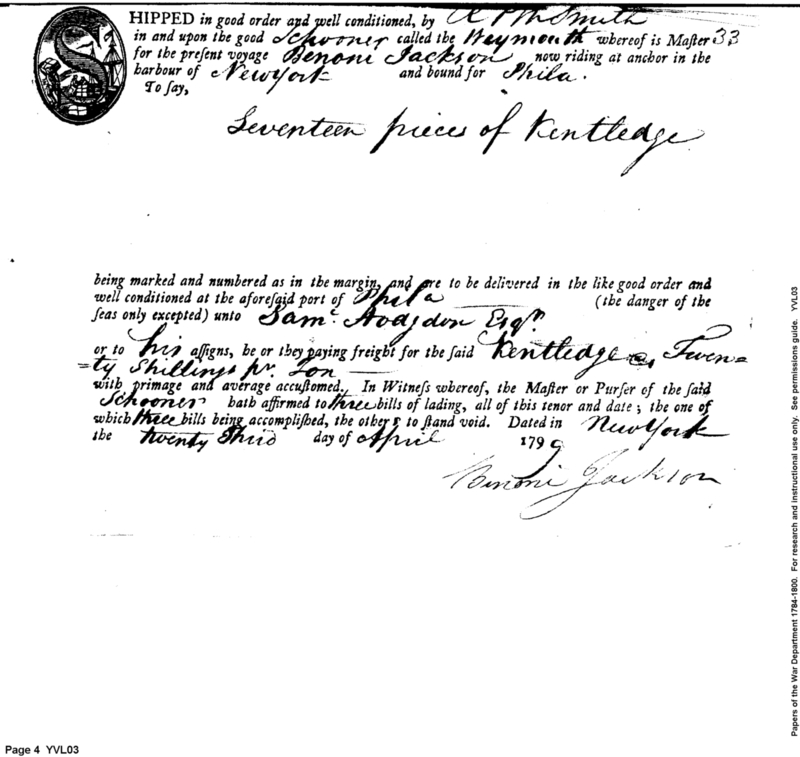 SHIPPED in good order and well conditioned, by Smith
in and upon the good Schooner called the Weymouth whereof is Maſter 33
for the preſent voyage Benoni Jackson now riding at anchor in the
harbour of New York and bound for Phila.
To ſay,
Seventeen pieces of Kentledge
being marked and numbered as in the margin, and are to be delivered in the like good order and
well conditioned at the aforeſaid port of Phila (the danger of the
ſeas only excepted) unto Saml. Hodgdon Esqr.
or to his aſſigns, he or they paying freight for the ſaid Kentledge @ Twen=
=ty Shillings pr. Ton
with primage and average accuſtomed. In Witneſs whereof, the Maſter or Purſer of the ſaid
Schooner hath affirmed to three bills of lading, all of this tenor and date; the one of
which three bills being accompliſhed, the others to ſtand void. Dated in New York
the twenty third day of April 1799
Benoni Jackson
Papers of the War Department 1784-1800. For research and instructional use only. See permissions guide. YVL03
Page 4 YVL03